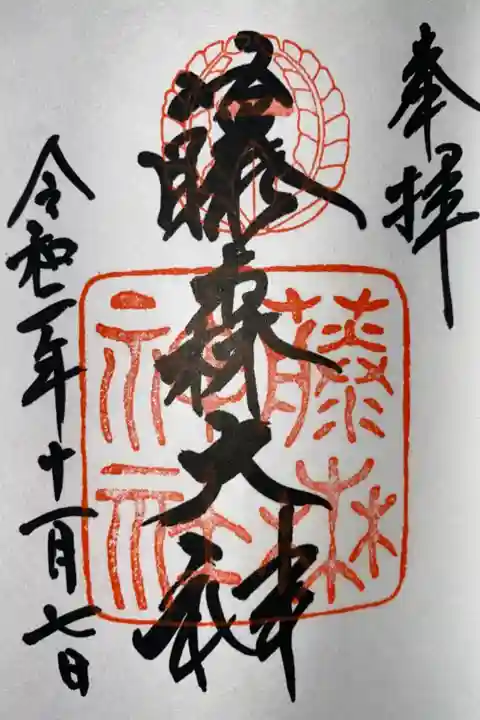 奉拝
藤森大神
令和二年十一月七日
藤森
神社